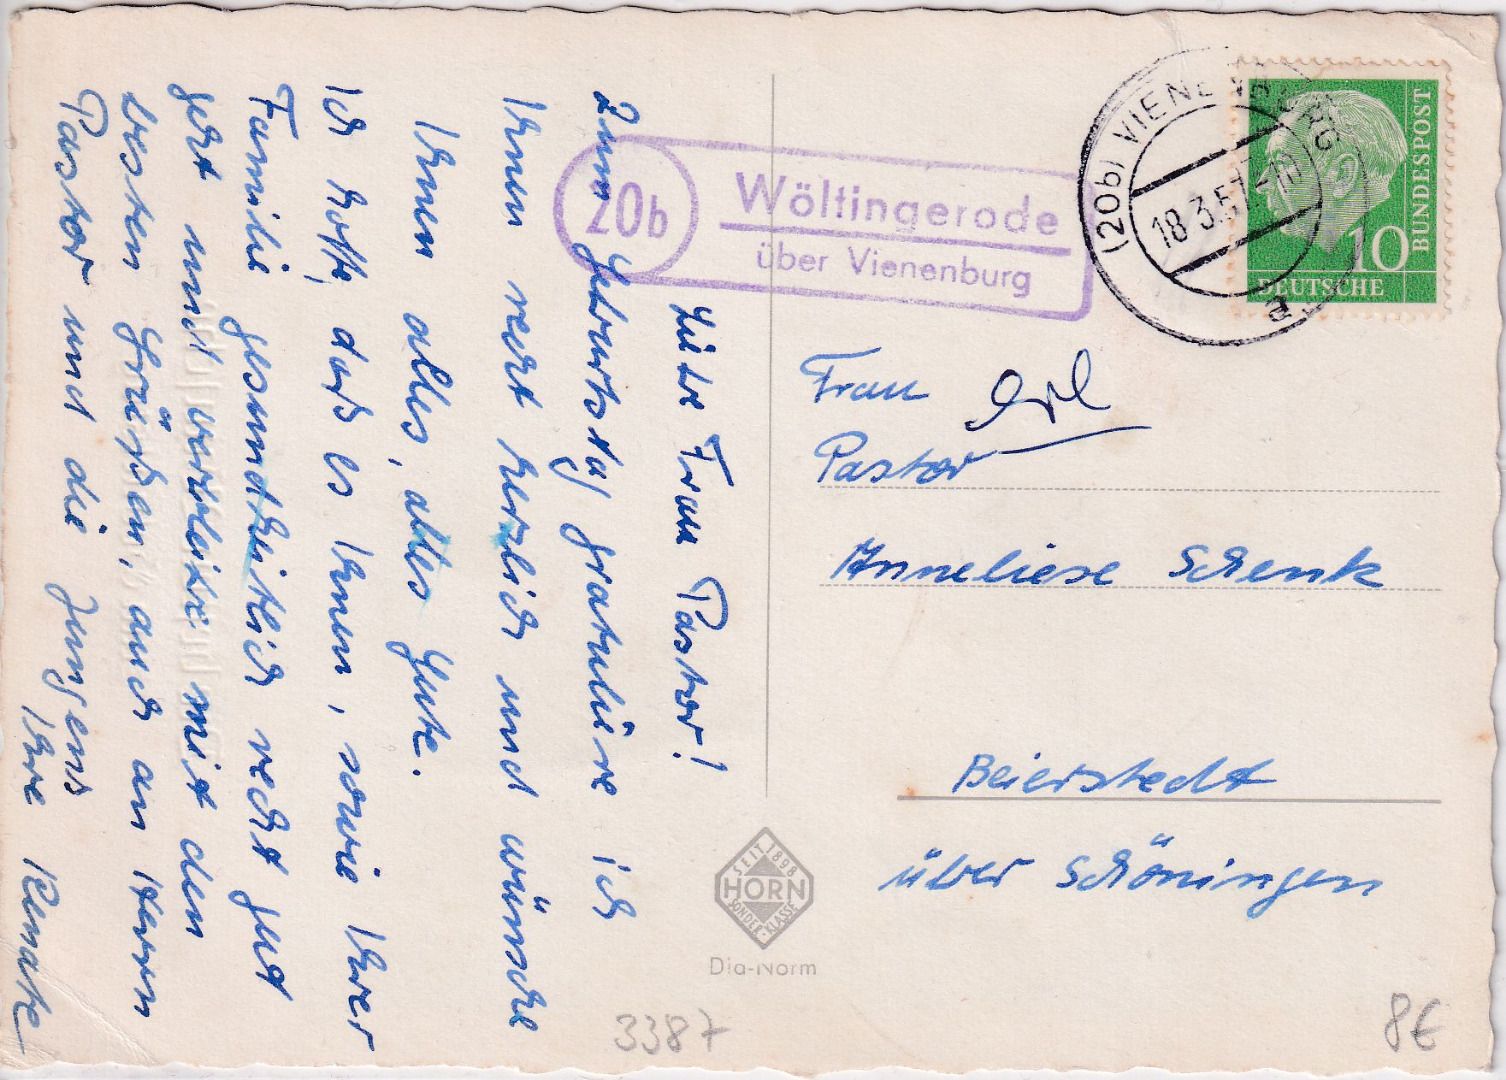 Liebe Frau Pastor!
Zum Geburtstag gratuliere ich
Ihnen recht herzlich und wünsche
Ihnen alles, alles Gute.
Ich hoffe, daß es Ihnen, sowie Ihrer
Familie gesundheitlich recht gut
geht und verbleibe mit den
besten Grüßen, auch an Herrn
Pastor und die Jungens
Ihre Renate
20b
Wöltingerode
über Vienenburg
(20b) VIENENBURG
18.3.57-10
a
BUNDESPOST
10
DEUTSCHE
Frau
Pastor
Anneliese Schenk
Beierstedt
über Schöningen
SEIT 1898
HORN
SONDER-KLASSE
Dia-Norm
3387
8€